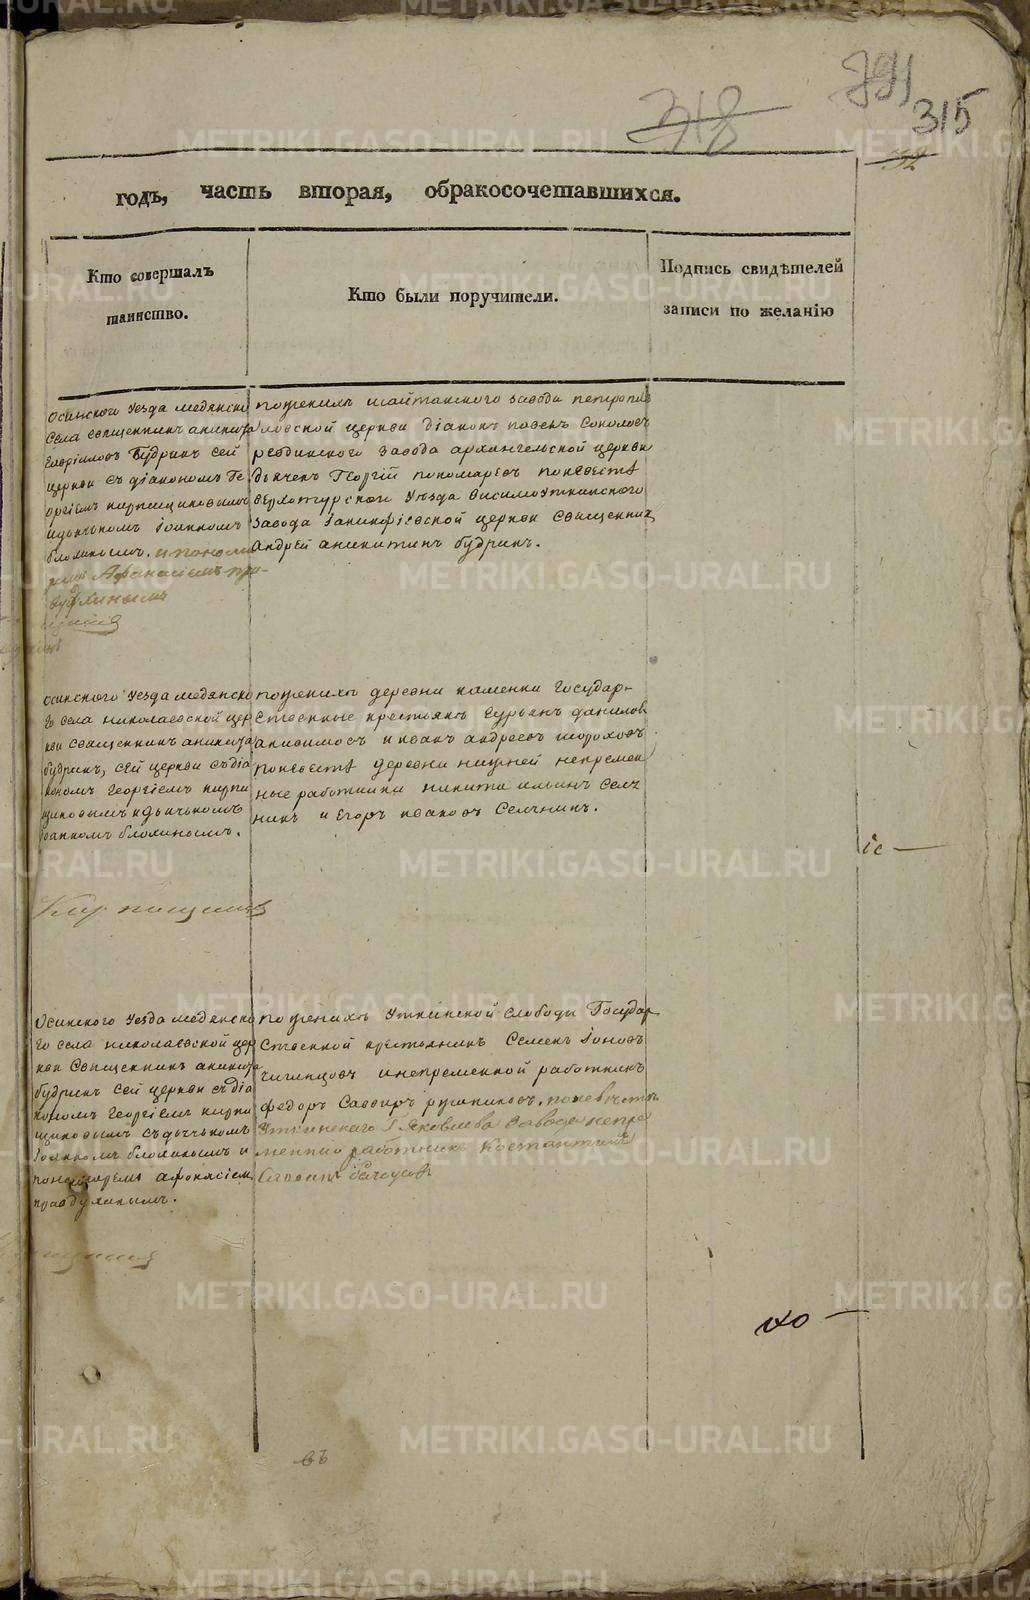 318
791
315
годъ, часть вторая, обракосочетавшихся.
Кто совершалъ
таинство.
Кто были поручители.
Подпись свидѣтелей
записи по желанію
Осинского уезда медянско
села священникъ аникита
Гавриловъ Будринъ сей
церкви съ діакономъ Ге
оргіемъ кирпищиковымъ
идьячькомъ іоанномъ
блохинымъ. и понома
ремъ Афанасіемъ пра-
вдухинымъ
пожениху шайтанского завода петропав
ловской церкви діаконъ павелъ Соколовъ
ревдинского завода архангельской церкви
дьячекъ Георгій пономаревъ поневестѣ
верхотурской уезда висимоуткинского
завода іаникіевской церкви священник
андрей аникитинъ будринъ.
осинского уезда медянско
го села николаевской цер
кви священникъ аникита
будринъ, сей церкви съ діа
кономъ георгіемъ кирпи
щиковымъ идьячькомъ
іоанномъ блохинымъ.
пожениху деревни каменки Государ-
ственные крестьяне Гурьянъ данилов
анисимовъ и иванъ андреевъ шороховъ
поневестѣ деревни нижней непремен
ные работники никита ильинъ Сел
никъ и Егоръ ивановъ Селникъ.
іс —
Осинского уезда медянско
го села николаевской цер
кви священникъ аникита
будринъ сей церкви съ діа
кономъ Георгіемъ кирпи
щиковымъ съ дьячькомъ
іоанномъ блохинымъ и
пономаремъ афонасіем
правдухинымъ.
пожениху Уткинской слободы Государ
ственной крестьянинъ Семенъ іоновъ
инепременной работникъ
федоръ Савиръ поневѣсте
Уткинскаго Г. Яковлева Завода непре
менный работникъ Костантинъ
въ